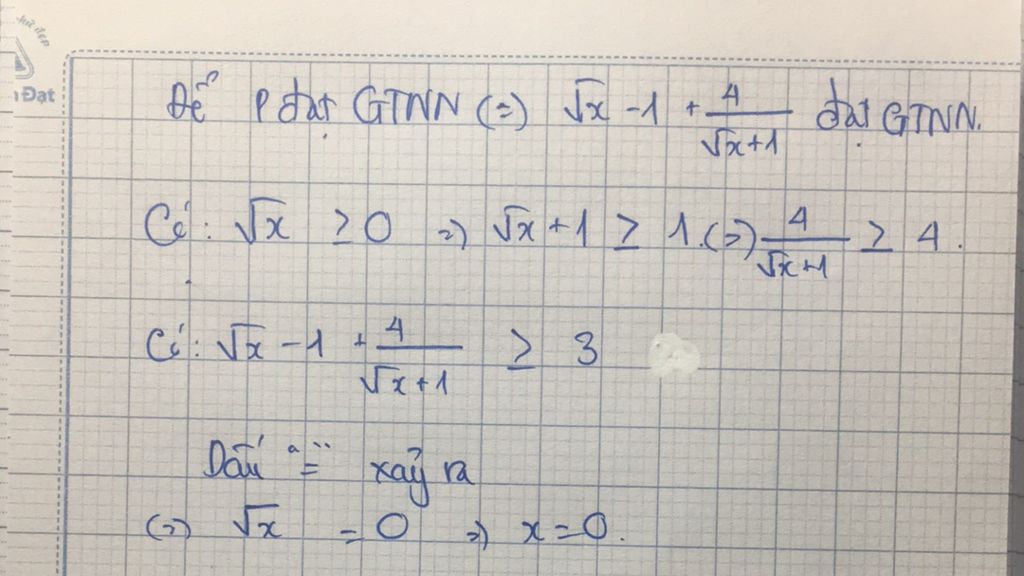 Đạt
Để P đạt GTNN (=) √x - 1 + 4/(√x+1) đạt GTNN.
Có: √x ≥ 0 =) √x + 1 ≥ 1. (=) 4/(√x+1) ≥ 4.
Có: √x - 1 + 4/(√x+1) ≥ 3
Dấu "=" xảy ra
(=) √x = 0 =) x = 0.